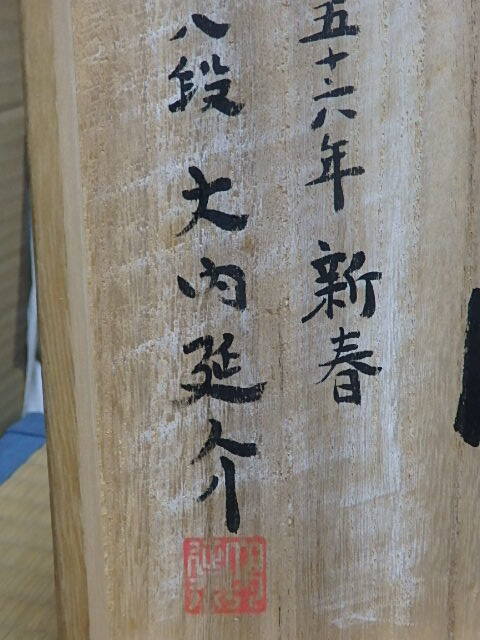 五十六年 新春
八段 大内延介